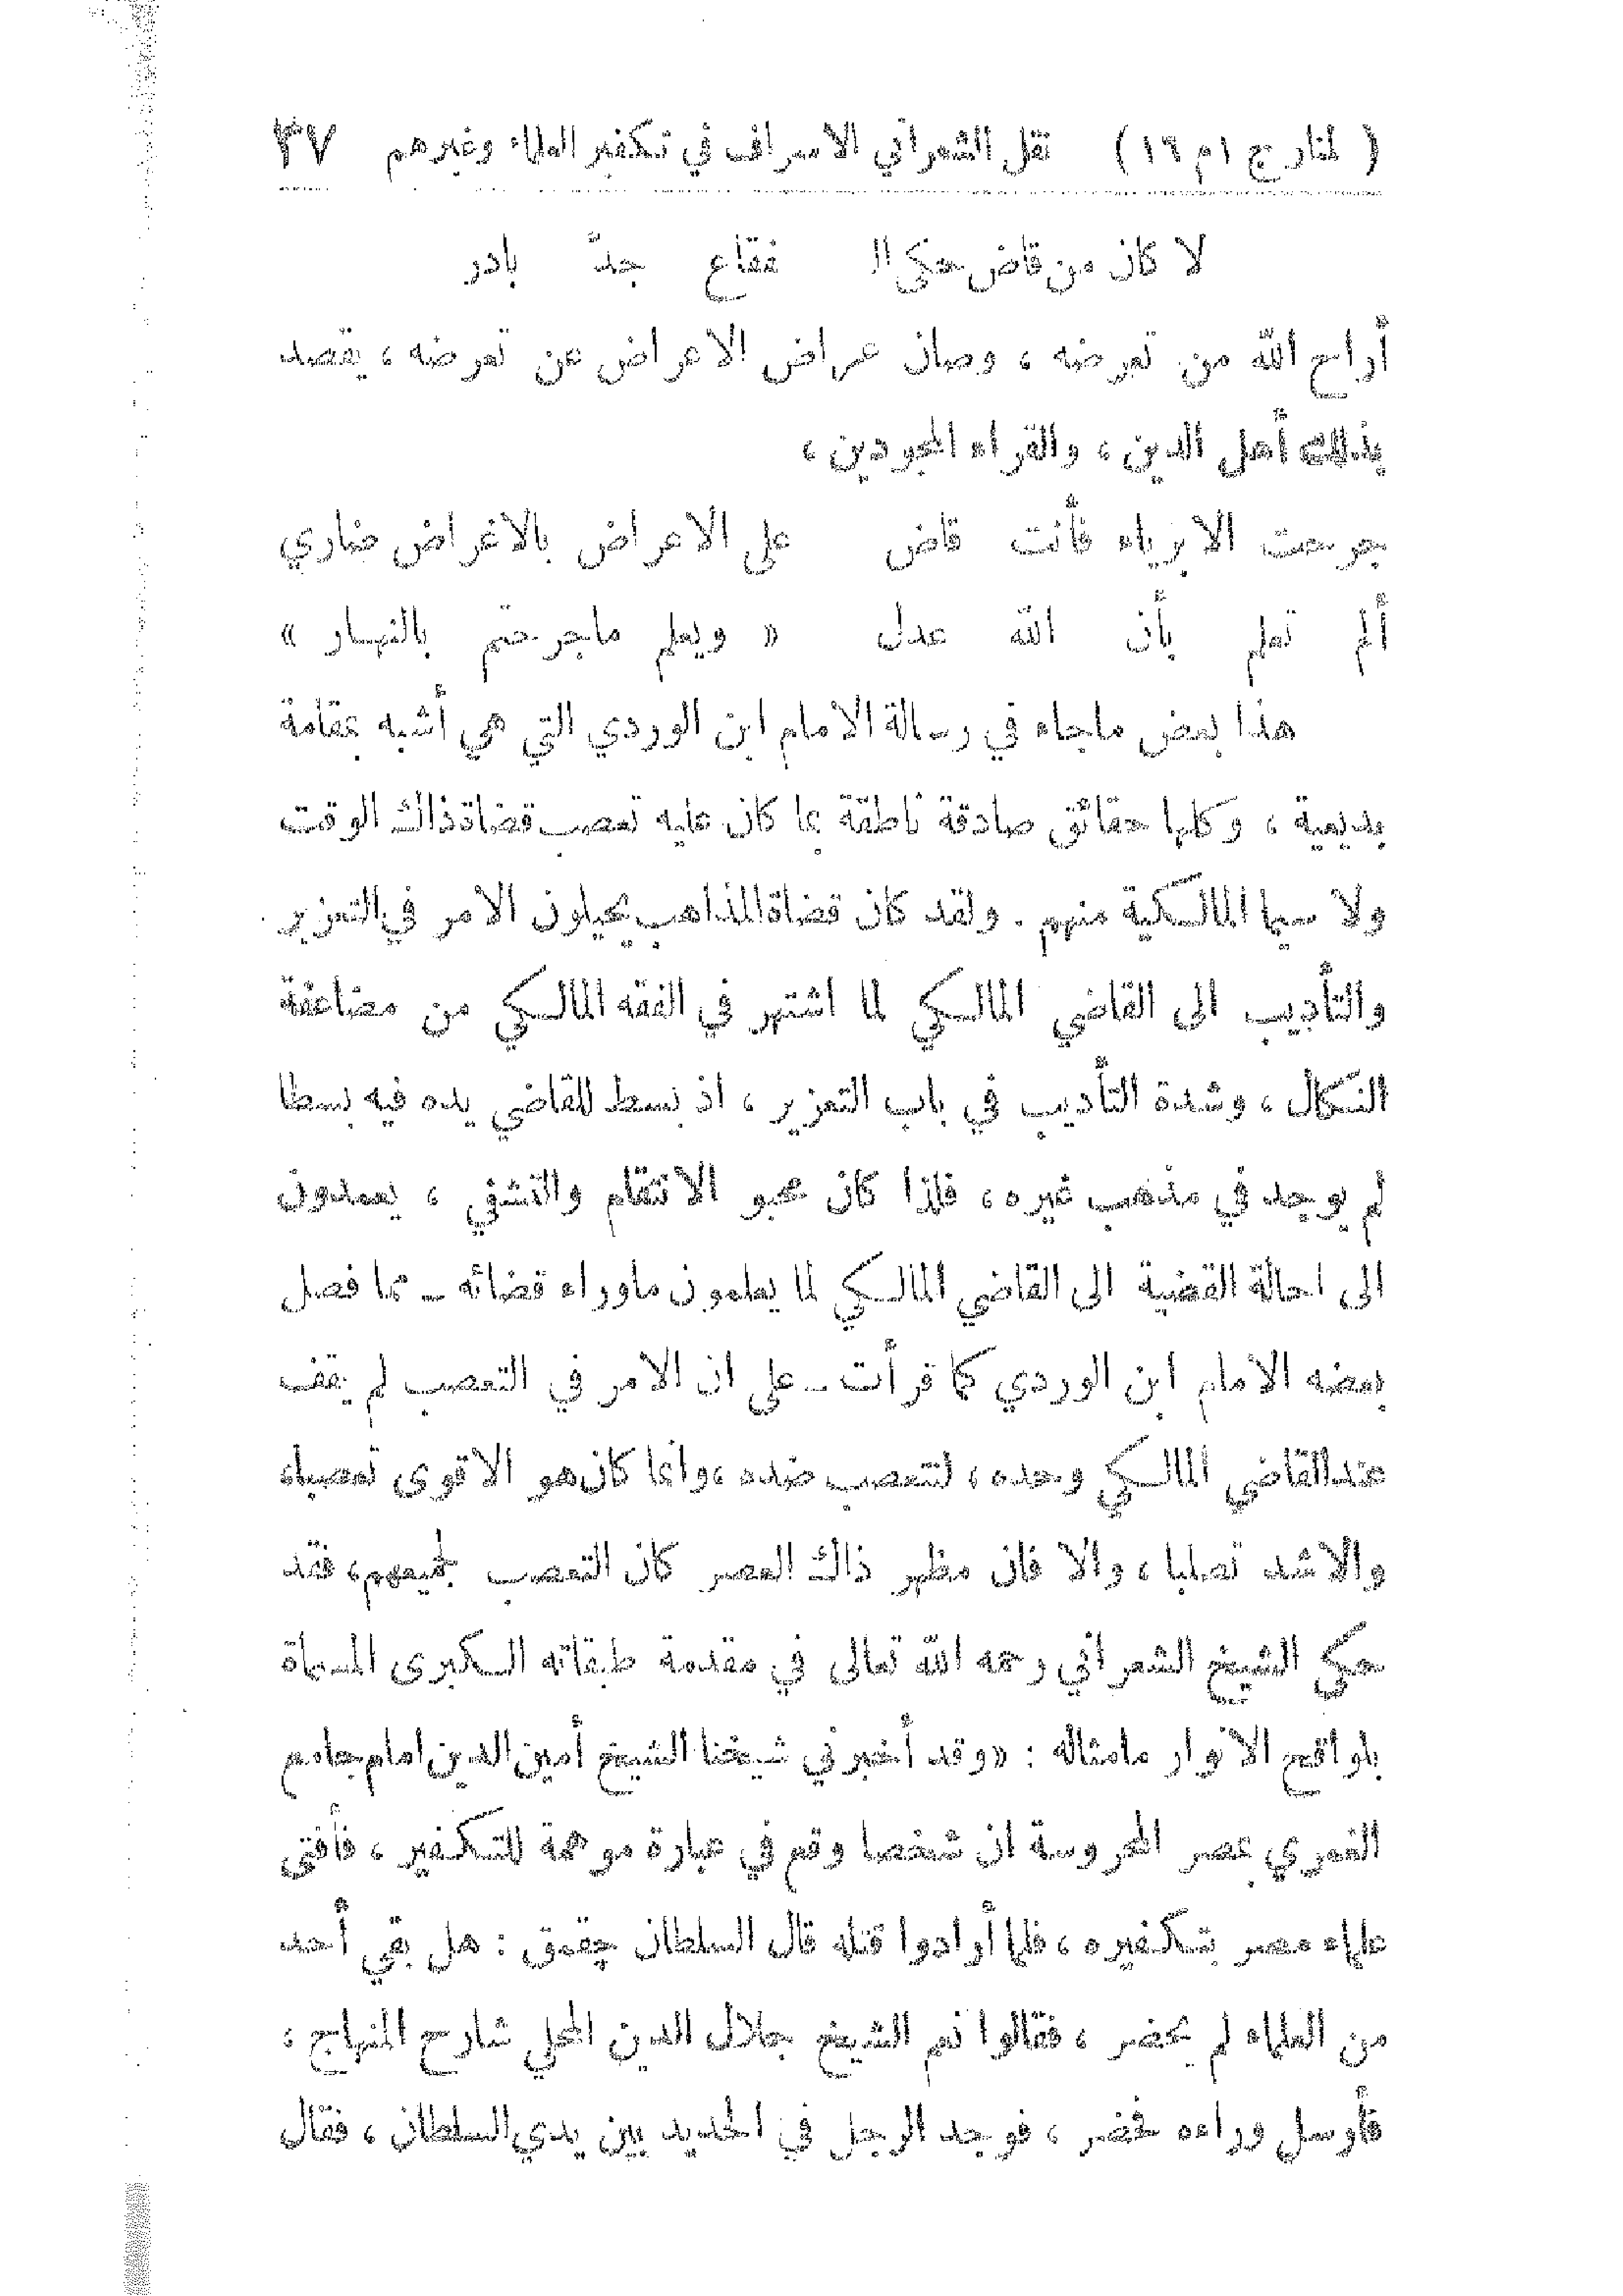 ( المنار ج ١ م ١٦ ) نقل الشعراني الاسراف في تكفير العلماء وغيرهم ٣٧
لا كان من قاض حكى !! فقاع جدّ بادر
أراح الله من تعرضه ، وصان عراض الاعراض عن تعرضه ، يقصد
بذلك أهل الدين ، والقراء المجودين ،
جرحت الابرياء فأنت قاض على الاعراض بالاغراض ضاري
ألم تعلم بأن الله عدل « ويعلم ماجرحتم بالنهار »
هذا بعض ماجاء في رسالة الامام ابن الوردي التي هي أشبه بمقامة
بديعية ، وكلها حقائق صادقة ناطقة بما كان عليه تعصب قضاة ذاك الوقت
ولا سيما المالكية منهم . ولقد كان قضاة المذاهب يحيلون الامر في التعزير
والتأديب الى القاضي المالكي لما اشتهر في الفقه المالكي من مضاعفة
النكال ، وشدة التأديب في باب التعزير ، اذ بسط للقاضي يده فيه بسطا
لم يوجد في مذهب غيره ، فلذا كان محبو الانتقام والتشفي ، يعمدون
الى احالة القضية الى القاضي المالكي لما يعلمون ماوراء قضائه ــ مما فصل
بعضه الامام ابن الوردي كما قرأت ــ على ان الامر في التعصب لم يقف
عند القاضي المالكي وحده ، لتتعصب ضده ، وانما كان هو الاقوى تعصبا،
والاشد تصلبا ، والا فان مظهر ذاك العصر كان التعصب لجميعهم، فقد
حكى الشيخ الشعراني رحمه الله تعالى في مقدمة طبقاته الكبرى المسماة
بلواقح الانوار مامثاله : «وقد أخبرني شيخنا الشيخ أمين الدين امام جامع
الغمري بمصر المحروسة ان شخصا وقع في عبارة موهمة للتكفير ، فأفتى
علماء مصر بتكفيره ، فلما أرادوا قتله قال السلطان جقمق : هل بقي أحد
من العلماء لم يحضر ، فقالوا نعم الشيخ جلال الدين المحلي شارح المنهاج ،
فأرسل وراءه فحضر ، فوجد الرجل في الحديد بين يدي السلطان ، فقال